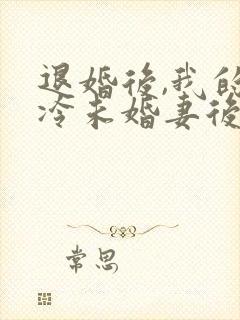 退婚後,我的
冷未婚妻後
常思